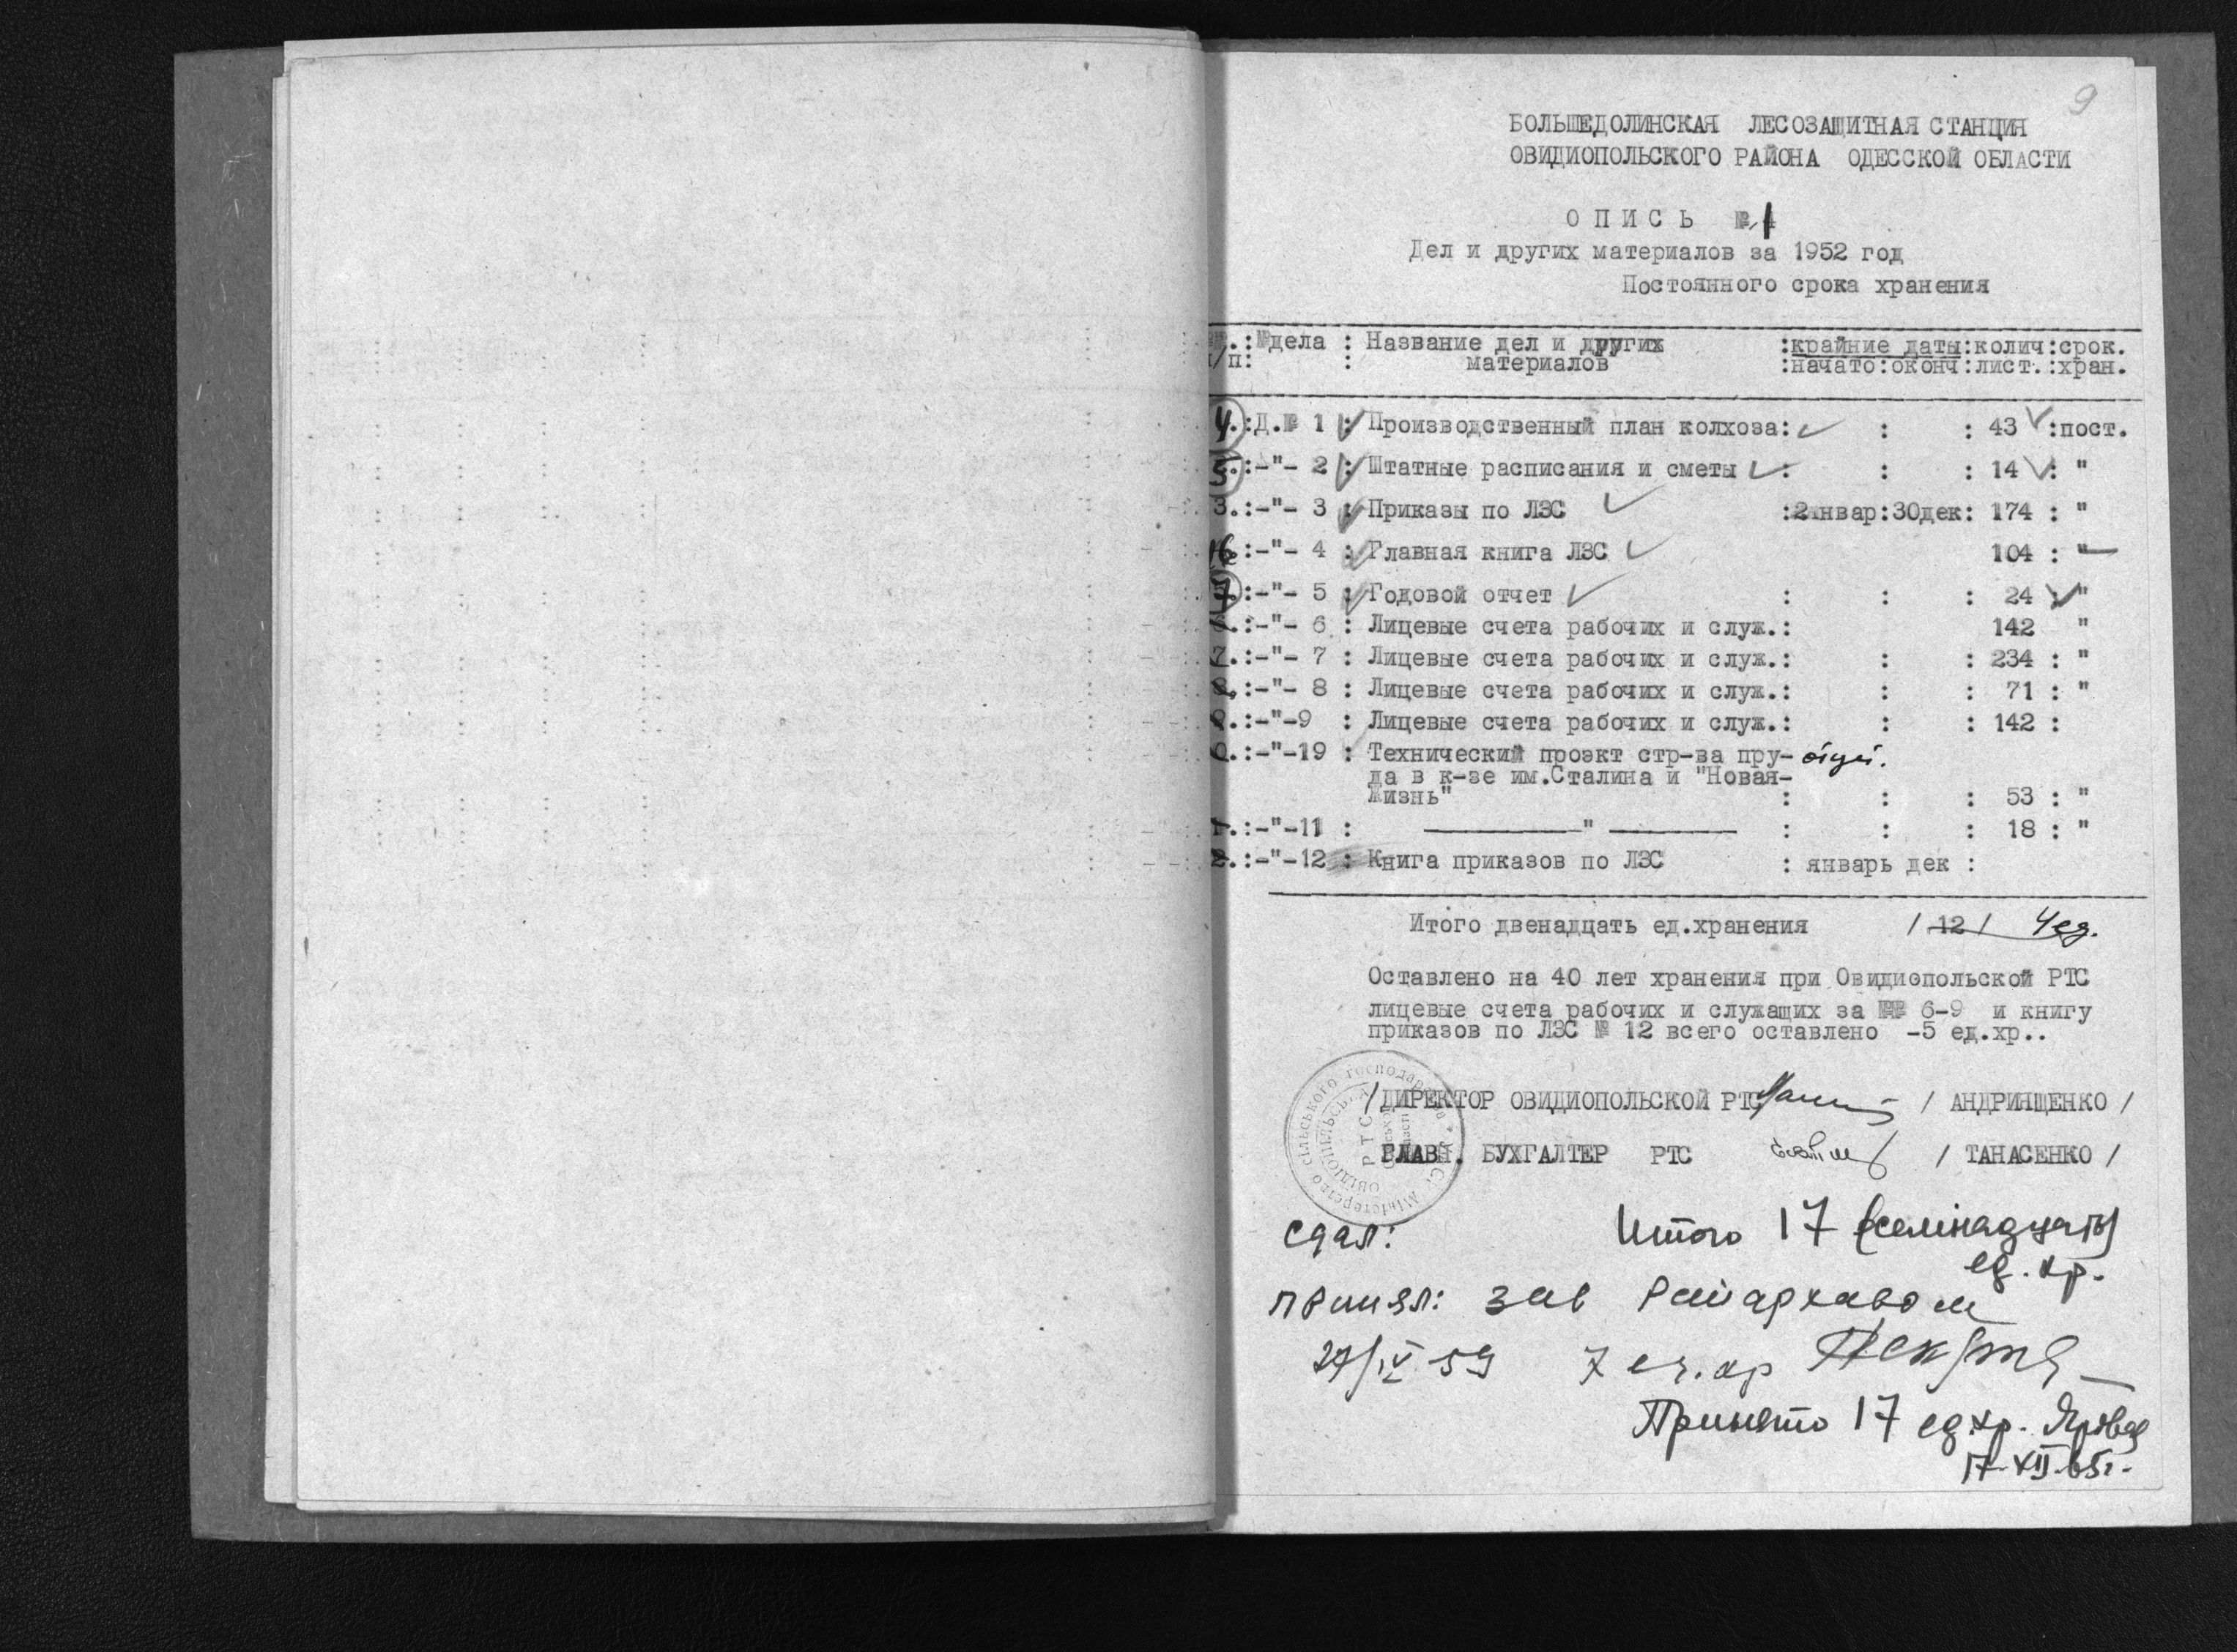 9
БОЛЬШЕДОЛИНСКАЯ ЛЕСОЗАЩИТНАЯ СТАНЦИЯ
ОВИДИОПОЛЬСКОГО РАЙОНА ОДЕССКОЙ ОБЛАСТИ
О П И С Ь № 1
Дел и других материалов за 1952 год
Постоянного срока хранения
:№дела : Название дел и других :крайние даты:колич:срок.
/п: : материалов :начато:оконч:лист.:хран.
4.:Д.№ 1 : Производственный план колхоза: : : 43 :пост.
5.:-"- 2 : Штатные расписания и сметы : : : 14 : "
3.:-"- 3 : Приказы по ЛЗС :2январ:30дек: 174 : "
:-"- 4 : Главная книга ЛЗС 104 : "
7.:-"- 5 : Годовой отчет : : : 24 : "
6.:-"- 6 : Лицевые счета рабочих и служ.: 142 "
7.:-"- 7 : Лицевые счета рабочих и служ.: : : 234 : "
8.:-"- 8 : Лицевые счета рабочих и служ.: : : 71 : "
9.:-"-9 : Лицевые счета рабочих и служ.: : : 142 :
0.:-"-19 : Технический проэкт стр-ва пру-
да в к-зе им.Сталина и "Новая-
Жизнь" : : : 53 : "
1.:-"-11 : " : : : 18 : "
2.:-"-12 : Книга приказов по ЛЗС : январь дек :
Итого двенадцать ед.хранения / 12 / 4 ед.
Оставлено на 40 лет хранения при Овидиопольской РТС
лицевые счета рабочих и служащих за №№ 6-9 и книгу
приказов по ЛЗС № 12 всего оставлено -5 ед.хр..
/ДИРЕКТОР ОВИДИОПОЛЬСКОЙ РТС / АНДРИЯЩЕНКО /
ГЛАВН. БУХГАЛТЕР РТС / ТАНАСЕНКО /
Міністерство сільського господарства
РТС
сдал: Итого 17 (семнадцать)
ед. хр.
принял: зав Райархивом
27/IV 59 7 ед. хр
Принято 17 ед.хр.
17.XII.65г.